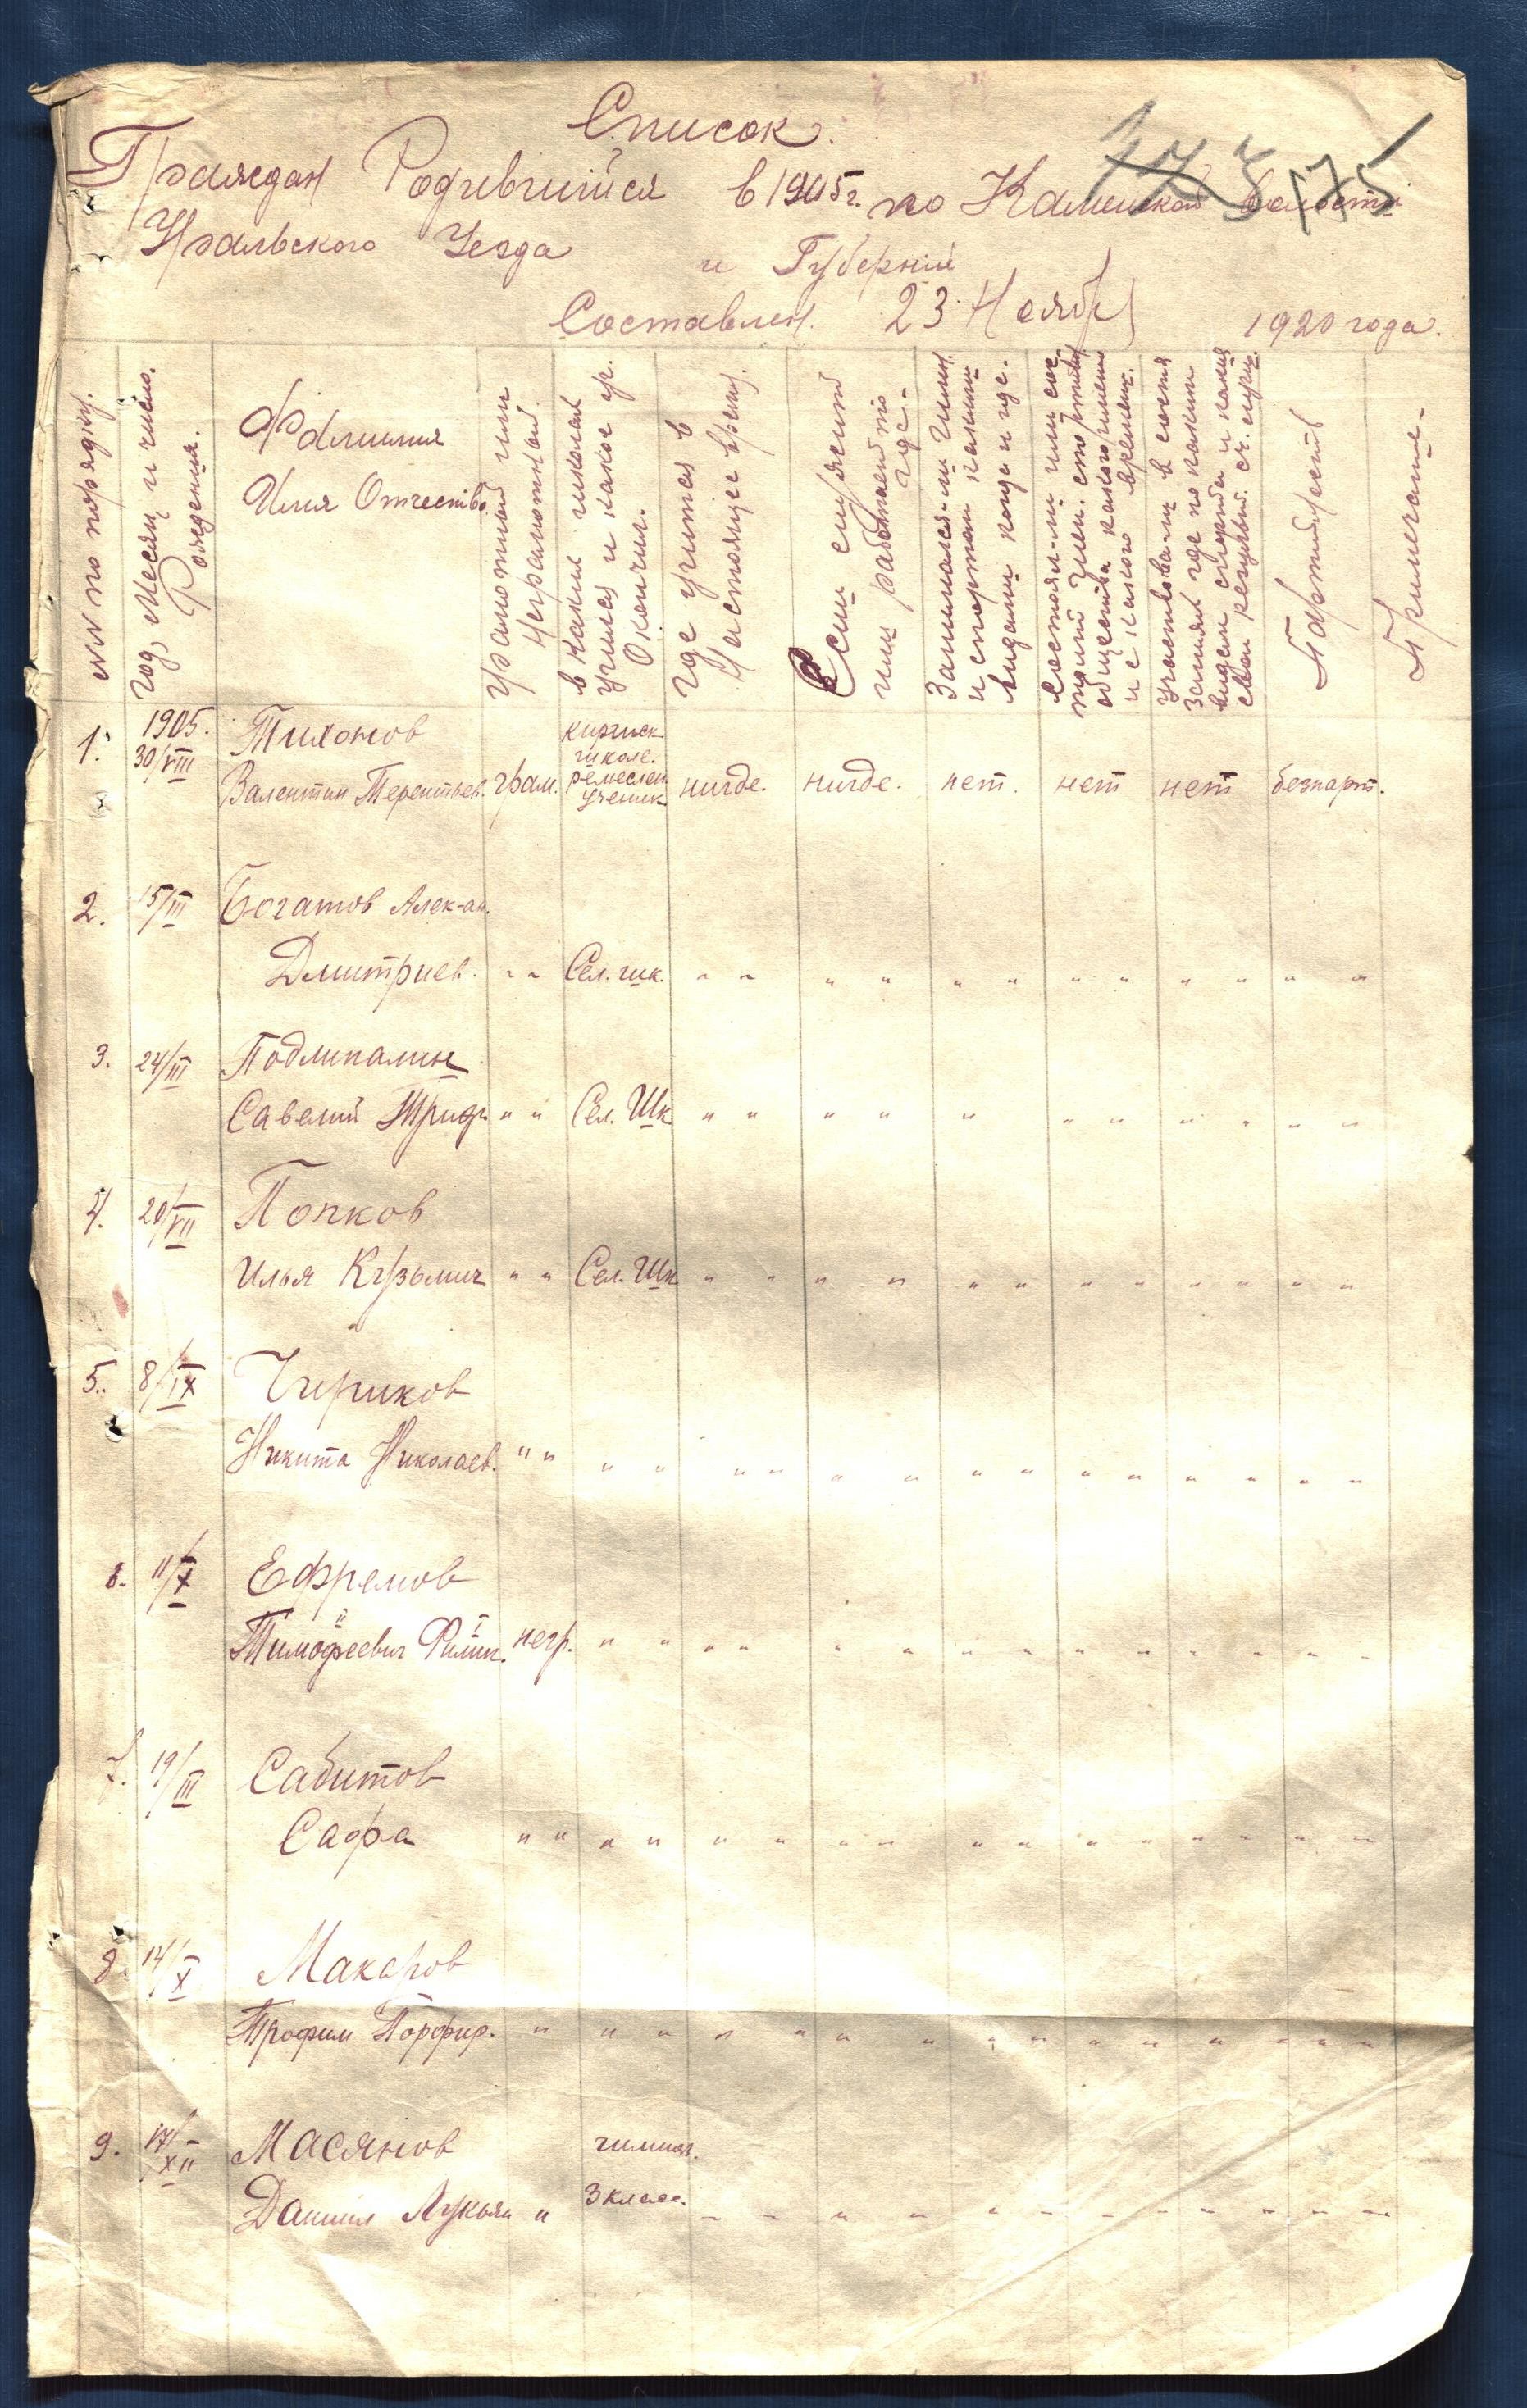 Список.
173 175
Граждан Родившийся в 1905 г. по Каменской волости
Уральского Уезда и Губернии
Составлен. 23 Ноября 1920 года.
№№ по порядку.
Год, Месяц и число.
Рождения.
Фамилия
Имя Отчество.
Грамотный или
Неграмотный.
в каких школах
учился и какое уч.
Окончил.
где учится в
Настоящее время.
Если служит
или работает то
где.
Занимался-ли Гимн.
и спортом какими
видами когда и где.
Участвова-ли в состя
заниях где по каким
видам спорта и какия
Партийность
Примечание.
1. 1905. Тихонов киргизск.
30/VIII школе.
Валентин Терентьев. грам. ремеслен ученик нигде. нигде. нет. нет нет безпарт.
2. 15/III Богатов Алек-ан.
Дмитриев. " " Сел. шк. " " " " " " " " " " " "
3. 24/III Подлипалин
Савелий Триф. " " Сел. Шк " " " " " " " " " " "
4. 20/VII Попков
Илья Кузьмич " " Сел. Шк " " " " " " " " " " " "
5. 8/IX Чириков
Никита Николаев. " " " " " " " " " " " " " " " "
6. 11/X Ефремов
Тимофеевич Филип. негр. " " " " " " " " " " " " " "
7. 19/III Сабитов
Сафа " " " " " " " " " " " " " " " "
8. 14/X Макаров
Трофим Порфир. " " " " " " " " " " " " " " "
9. 17/XII Масянов гимназ.
Даниил Лукьян " 3 класс. " " " " " " " " " " " "